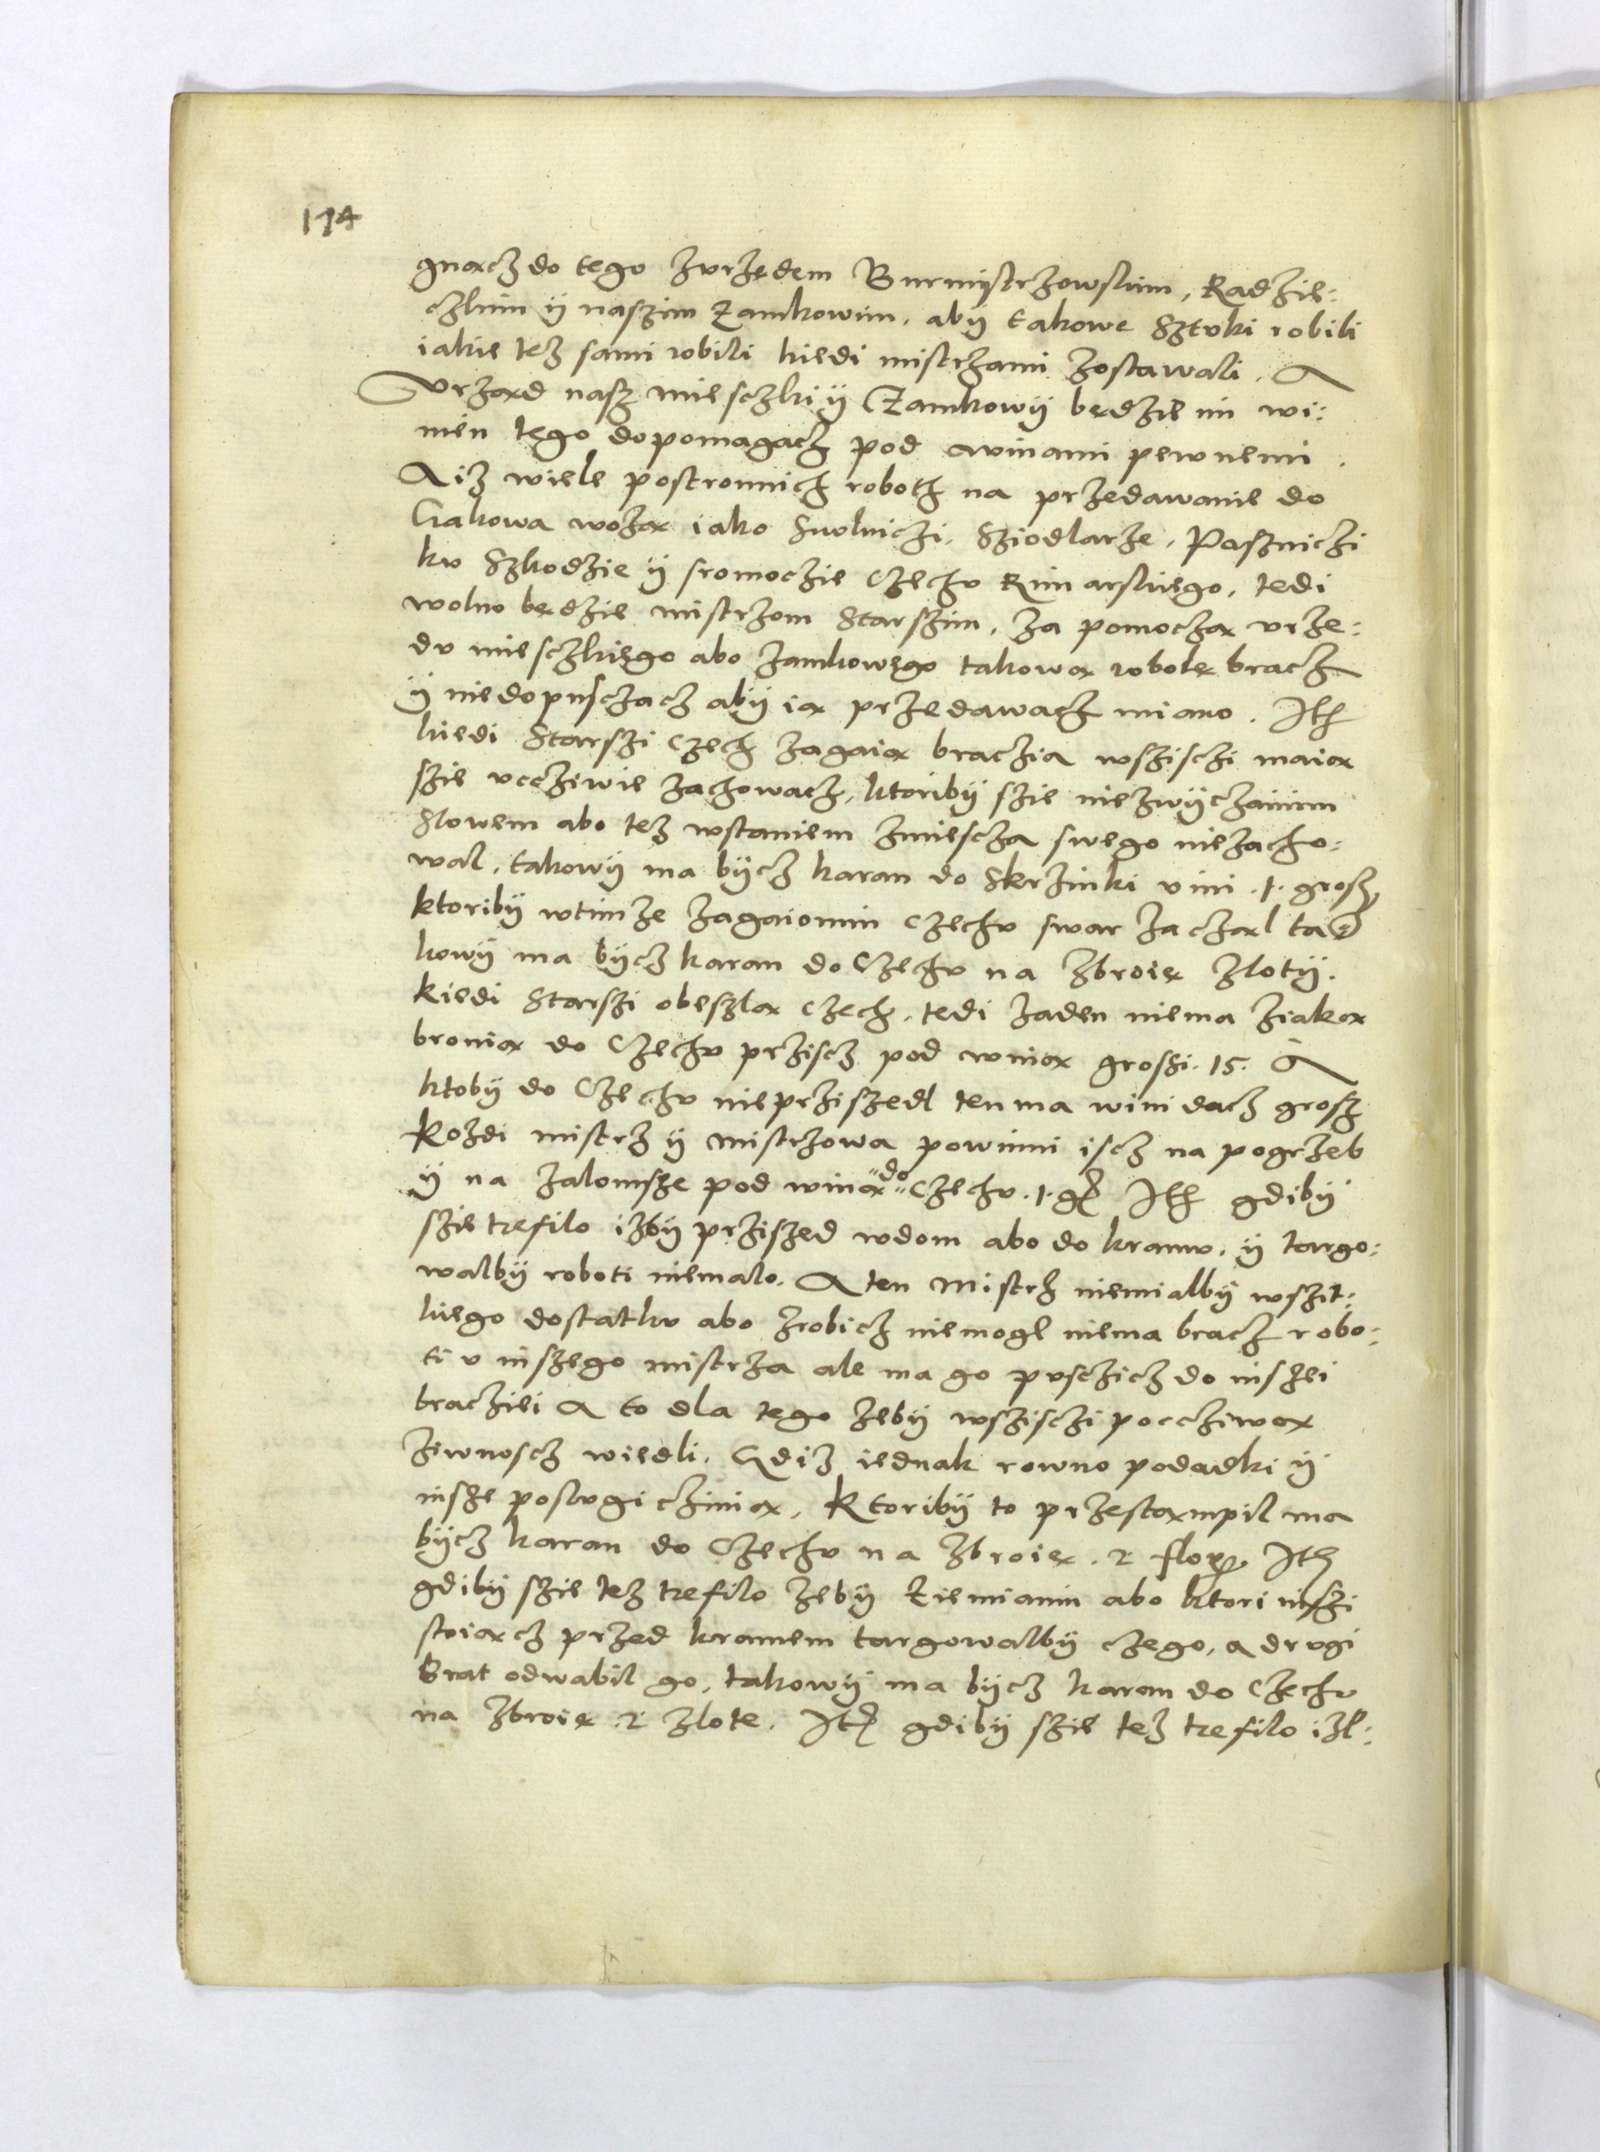 114
gnacz do tego zvrzędem Burmystrzowskim, Radzie:
czkim ÿ naszim Zamkowim, abÿ takowe Sztvki robili
iakie tez sami robili kiedi mistrzami zostawali. A
Vrzad nasz mieszczki ÿ Czamkowÿ będzie im wi:
men tego dopomagacz pod winami pewnemi.
A iz wiele postronnich roboth na przedawanie do
Crakowa woza iako Suolniczi, Sziodlarze, Paszniczi
kv Szkodzie ÿ sromoczie Czechv Rimarskiego, tedi
wolno będzie mistrzom Starszim, za pomocza vrze:
dv miesczkiego abo zamkowego takowa robote bracz
ÿ niedopusczacz abÿ ia przedawacz miano. Ith
kiedi Starszi Czech zagaia braczia wszisczi maia
szie vcziwie zachowacz, ktoribÿ szie niezwÿczainim
Slowem abo tez wstaniem zmiescza swego niezacho:
wal, takowÿ ma bÿcz karan do Skrzinki vini .1. grosz
ktoribÿ wtimze zagaionim Czechv swar zaczal ta
kowÿ ma bÿcz karan do Czechv na zbroie zlotÿ.
kiedi Starszi obeszla Czech, tedi zaden niema ziaka
bronia do Czechv przisz pod wina groszi. 15. A
ktobÿ do Czechv nieprziszedl ten ma wini dacz grosz
Kozdi mistrz ÿ mistrzowa powinni iscz na pogrzeb
ÿ na zalomsze pod wina do Czechv .1. gr Ith gdibÿ
szie trefilo izbÿ przised wdom abo do kramv, ÿ targo:
walbÿ roboti niemalo. A ten Mistrz niemialbÿ wszit:
kiego dostatkv abo zrobicz niemogl niema bracz robo:
ti v inszego mistrza ale ma go pvsczicz do inszei
braczieii A to dla tego zebÿ wszisczi poccziwa
ziwnoscz wiedli. Gdiz iednak rowno podadki ÿ
insze poslvgi czinia, Ktoribÿ to przestampil ma
bÿcz karan do Czechv na zbroie . 2 flor. Ith
gdibÿ szie tez trefilo zebÿ Ziemianin abo ktori inszi
stoiacz przed kramem targowalbÿ czego, a drvgi
brat odwabil go, takowÿ ma bÿcz karan do Czechv
na zbroie .2 zlote. Ith gdibÿ szie tez trefilo izl: